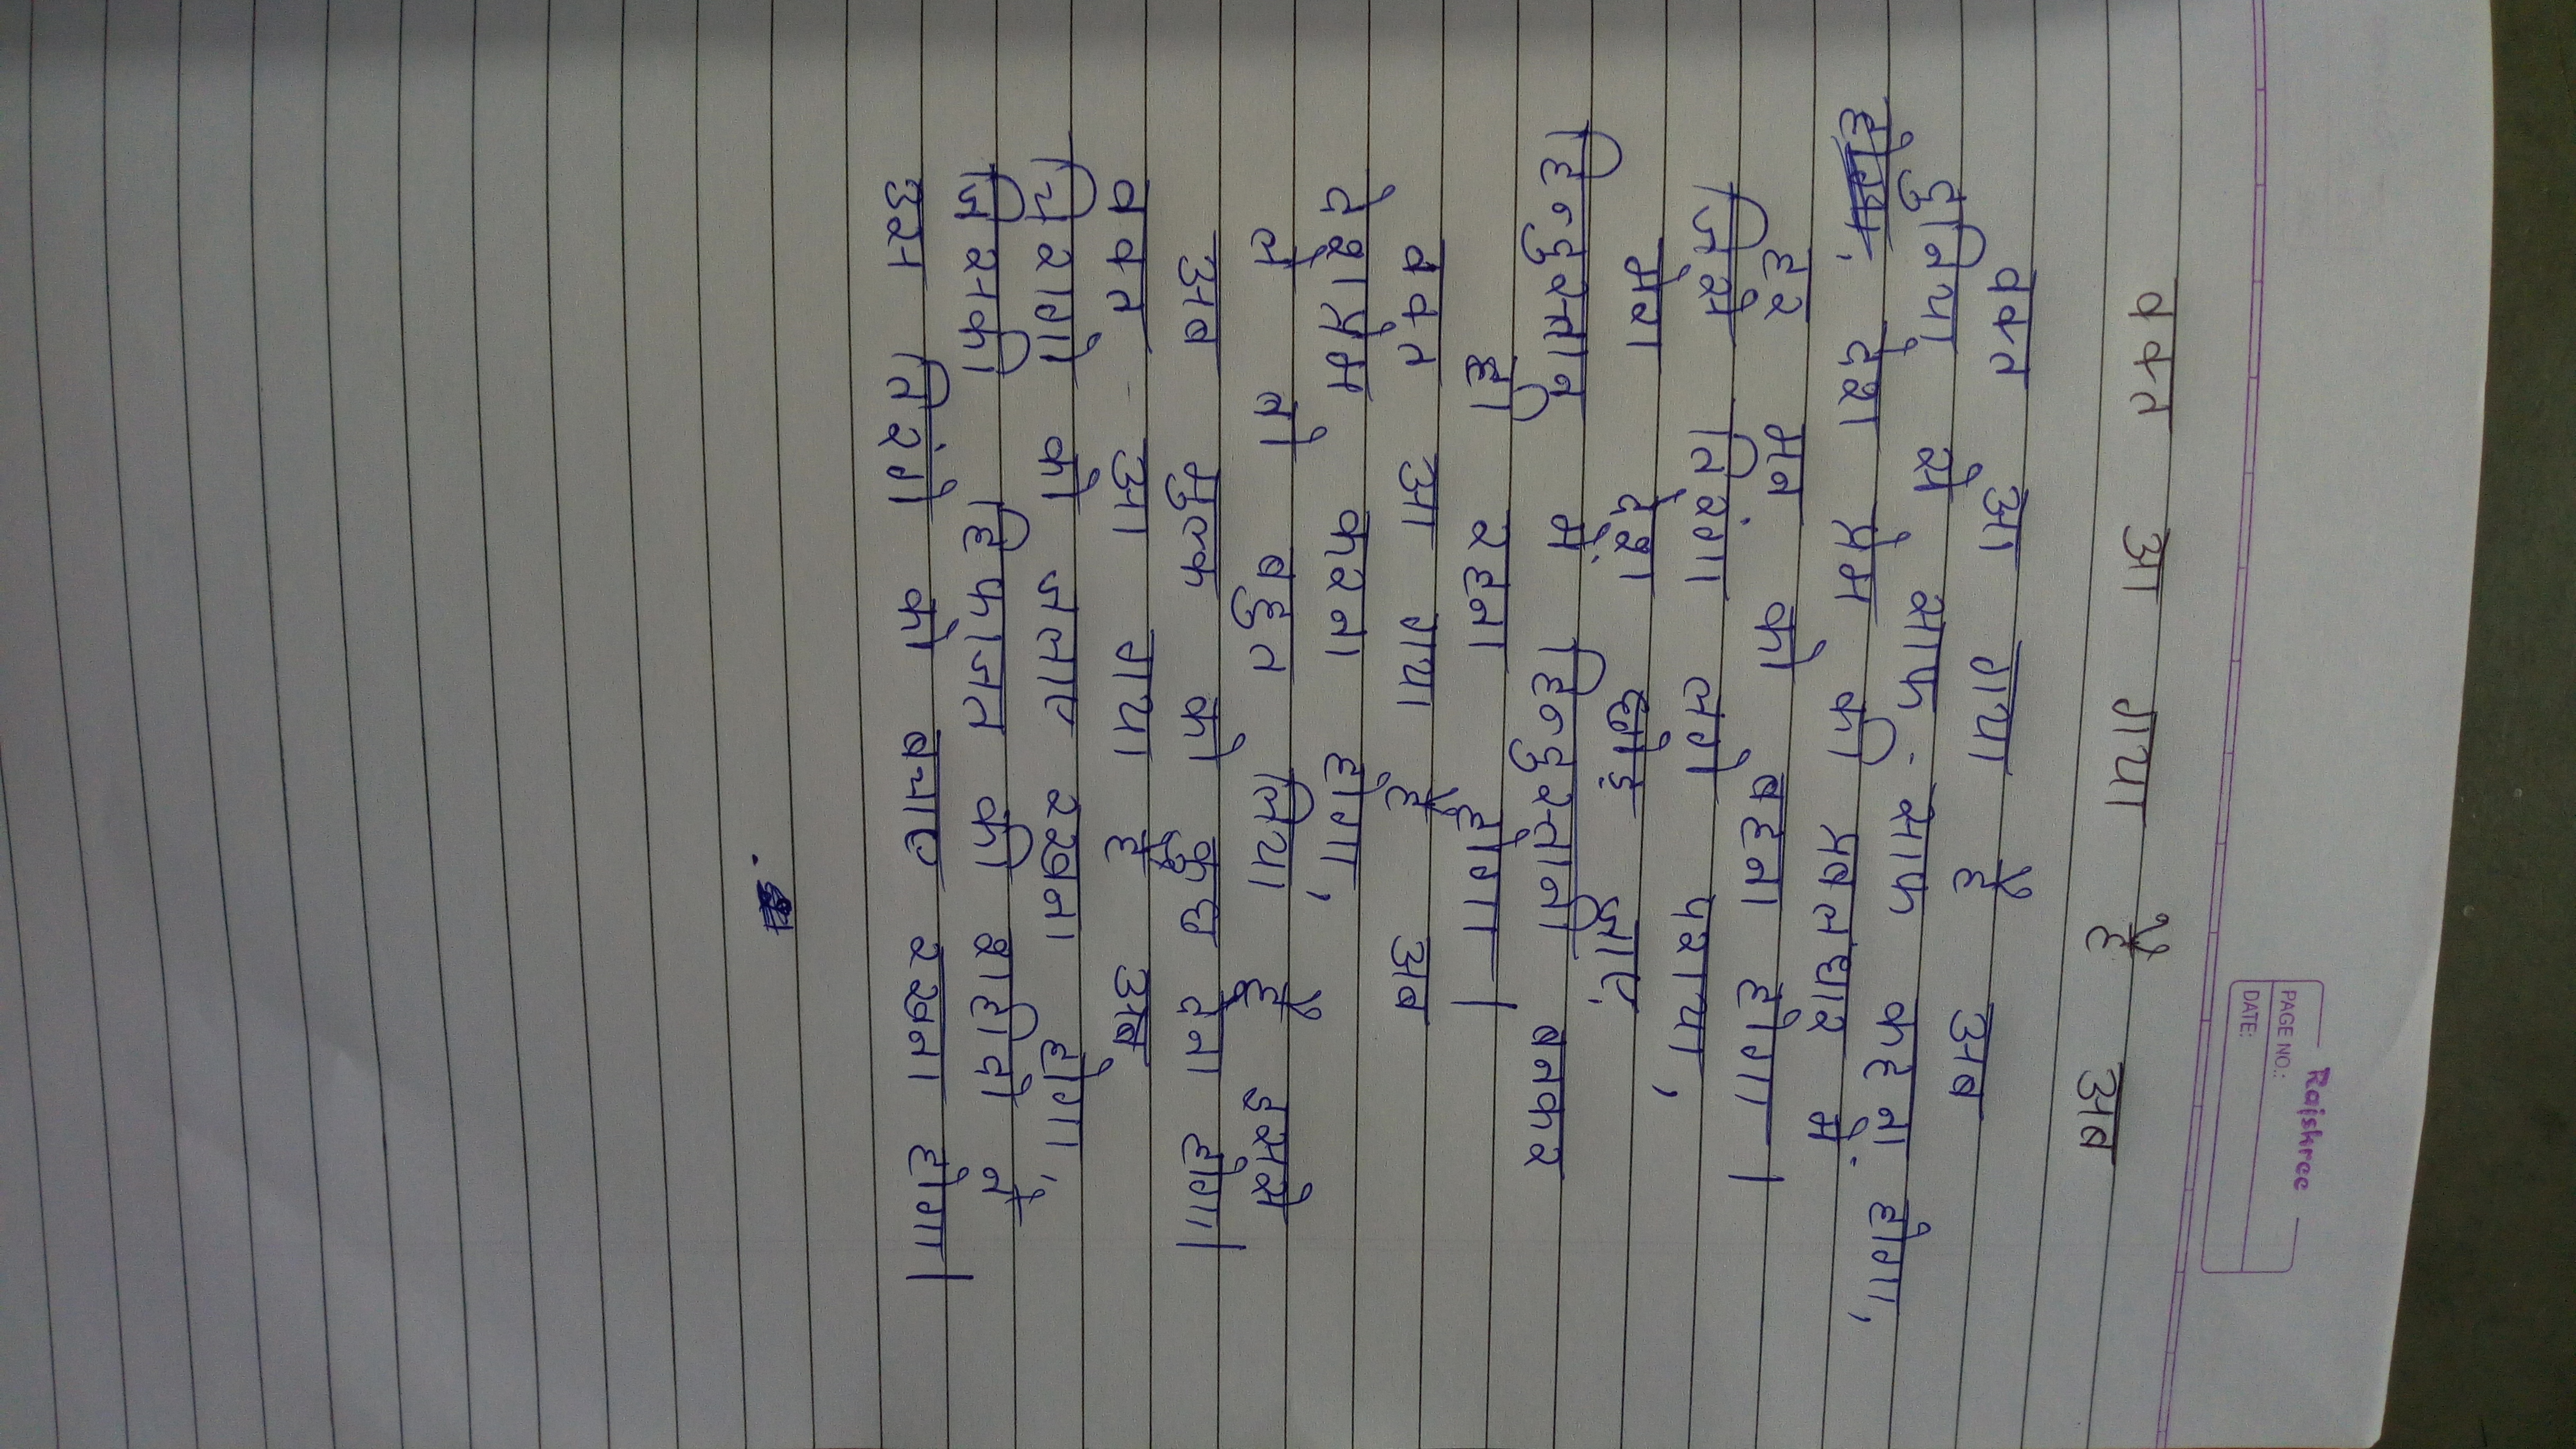 Rajshree
PAGE NO.:
DATE:
वक्त आ गया है अब
वक्त आ गया है अब
दुनिया से साफ-साफ कहना होगा,
देश प्रेम की प्रबलधार में
हर मन को बहना होगा।
जिसे तिरंगा लगे पराया,
मेरा देश छोड़ जाए,
हिन्दुस्तान में हिन्दुस्तानी बनकर
ही रहना होगा।
वक्त आ गया है अब
देशप्रेम करना होगा,
ले तो बहुत लिया है इससे
अब मुल्क को कुछ देना होगा।
वक्त आ गया है अब
चिरागो को जलाए रखना होगा,
जिसकी हिफाजत की शहीदो ने
उस तिरंगे को बचाए रखना होगा।